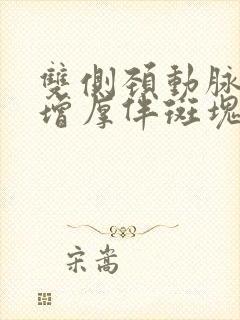 雙側頚動脉
增厚伴斑塊
宋嵩